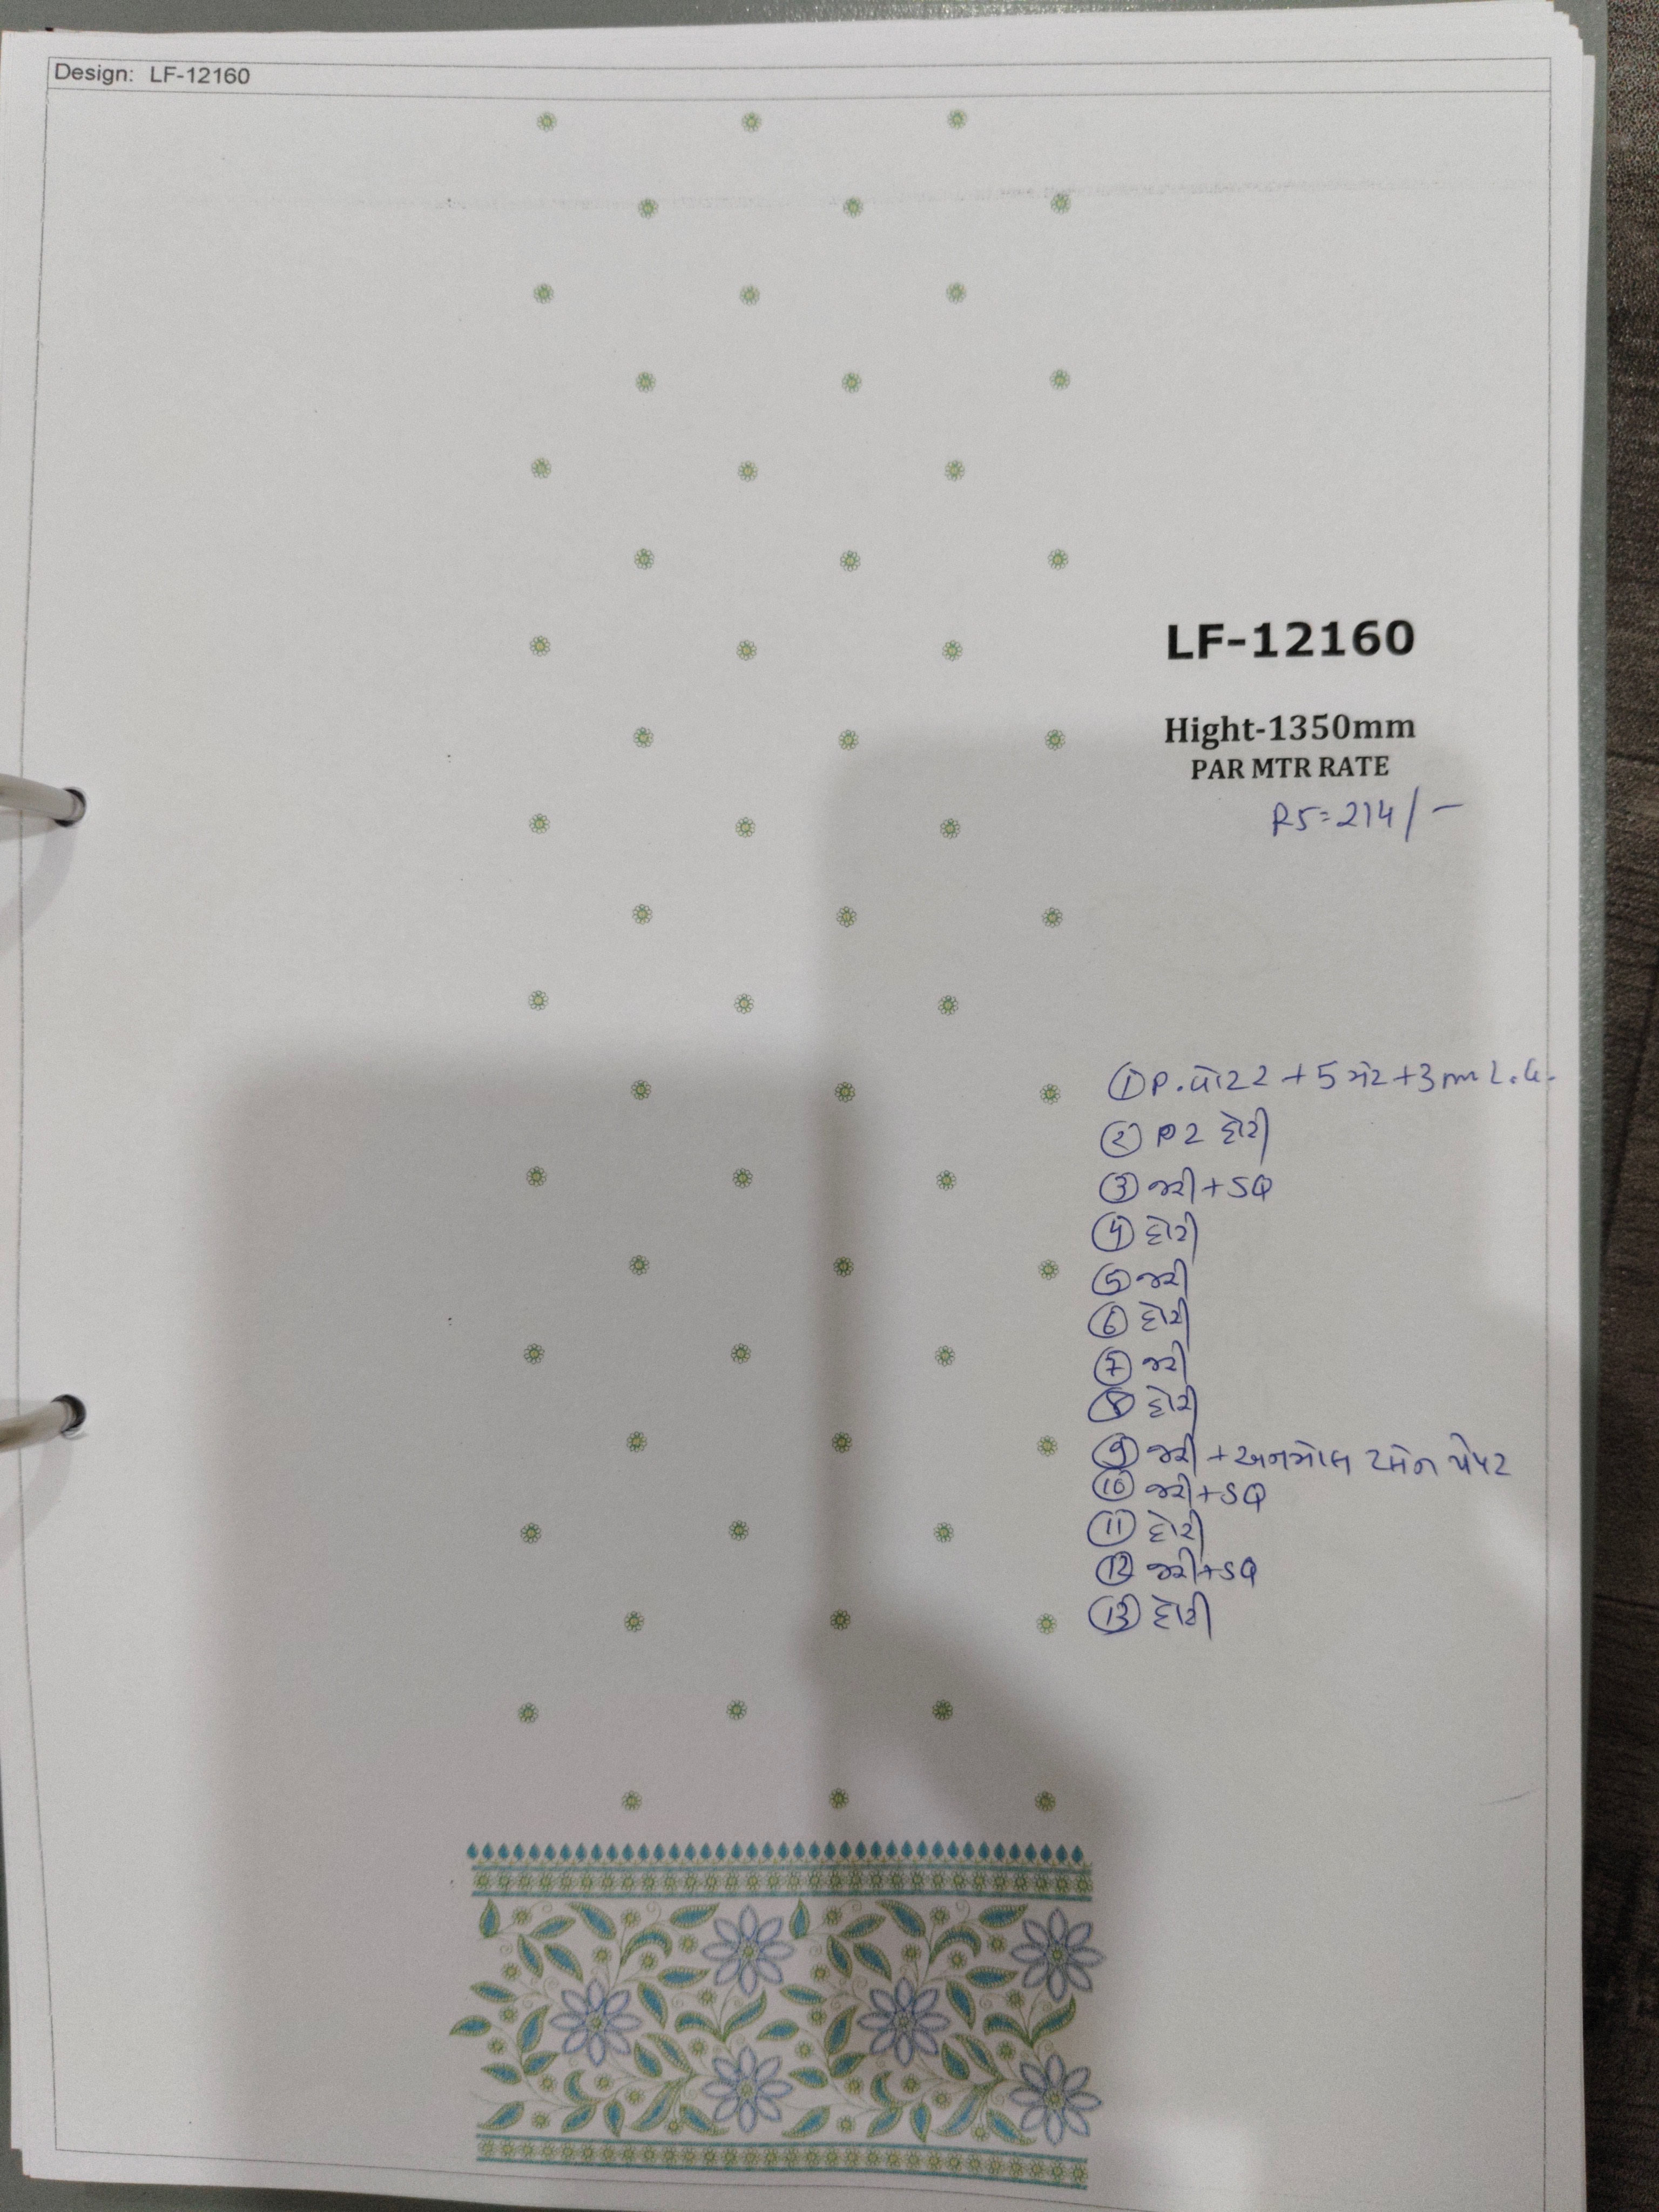 Design: LF-12160
LF-12160
Hight-1350mm
PAR MTR RATE
RS=214/-
① P. +5 +3mm
② P2 દોરી
③ જરી+SQ
④ દોરી
⑤ જરી
⑥ દોરી
⑦ જરી
⑧ દોરી
⑨ જરી +અનમોલ
⑩ જરી+SQ
⑪ દોરી
⑫ જરી+SQ
⑬ દોરી